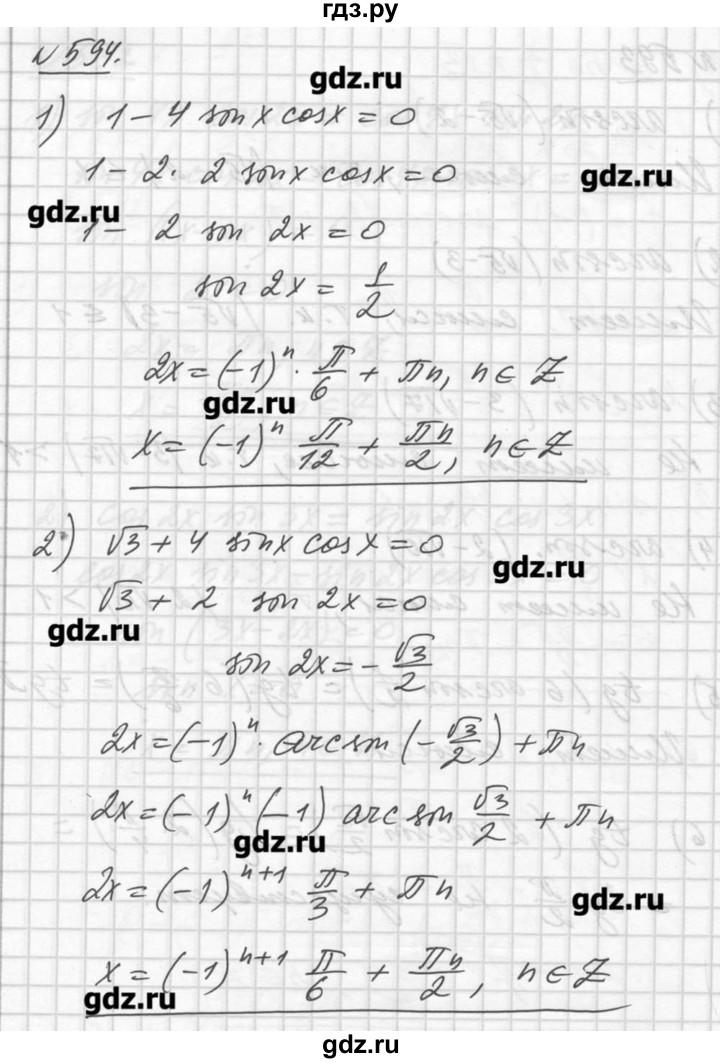 гдз.ру
№ 594.
gdz.ru
1) 1 - 4 sin x cos x = 0
1 - 2 · 2 sin x cos x = 0
gdz.ru
gdz.ru
1 - 2 sin 2x = 0
sin 2x = 1/2
2x = (-1)^n · π/6 + πn, n ∈ Z
gdz.ru
x = (-1)^n π/12 + πn/2, n ∈ Z
2) √3 + 4 sin x cos x = 0
gdz.ru
√3 + 2 sin 2x = 0
gdz.ru
sin 2x = - √3/2
2x = (-1)^n · arcsin (- √3/2) + πn
2x = (-1)^n (-1) arcsin √3/2 + πn
gdz.ru
2x = (-1)^{n+1} π/3 + πn
gdz.ru
x = (-1)^{n+1} π/6 + πn/2, n ∈ Z
gdz.ru
gdz.ru